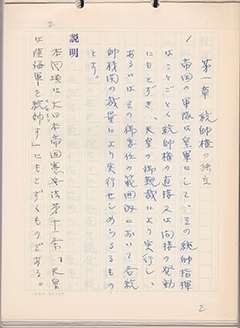 2
第一章 統帥権の独立
1
帝国の軍隊は皇軍にして、その統帥指揮
はことごとく統帥権の直接又は間接の発動
にもとずき、天皇の御親裁により実行し、
あるいはその御委任の範囲内において各統
帥機関の裁量により実行せしめらるるもの
とす。
説明
本同項は大日本帝国憲法第十一条「天皇
は陸海軍を統帥す」にもとずくものである。
2